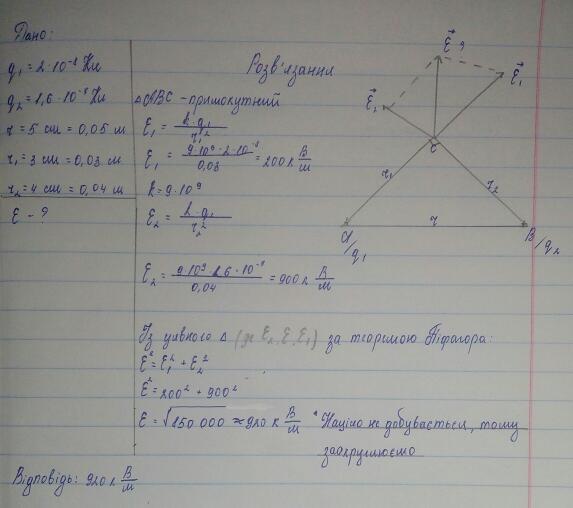 Дано:
q₁ = 2·10⁻⁸ Кл
q₂ = 1,6·10⁻⁸ Кл
r = 5 см = 0,05 м
r₁ = 3 см = 0,03 м
r₂ = 4 см = 0,04 м
E - ?
Розв'язання
△ABC - прямокутний
E₁ = k·q₁ / r₁²
E₁ = 9·10⁹·2·10⁻⁸ / 0,03 = 200 к В/м
k = 9·10⁹
E₂ = k·q₁ / r₂²
E₂ = 9·10⁹·1,6·10⁻⁸ / 0,04 = 900 к В/м
Із уявного △ (де E₂, E, E₁) за теоремою Піфагора:
E² = E₁² + E₂²
E² = 200² + 900²
E = √150 000 ≈ 920 к В/м * Націло не добувається, тому
заокруглюємо
Відповідь: 920 к В/м
E ?
E₁
E₂
C
r₁
r₂
r
A/q₁
B/q₂